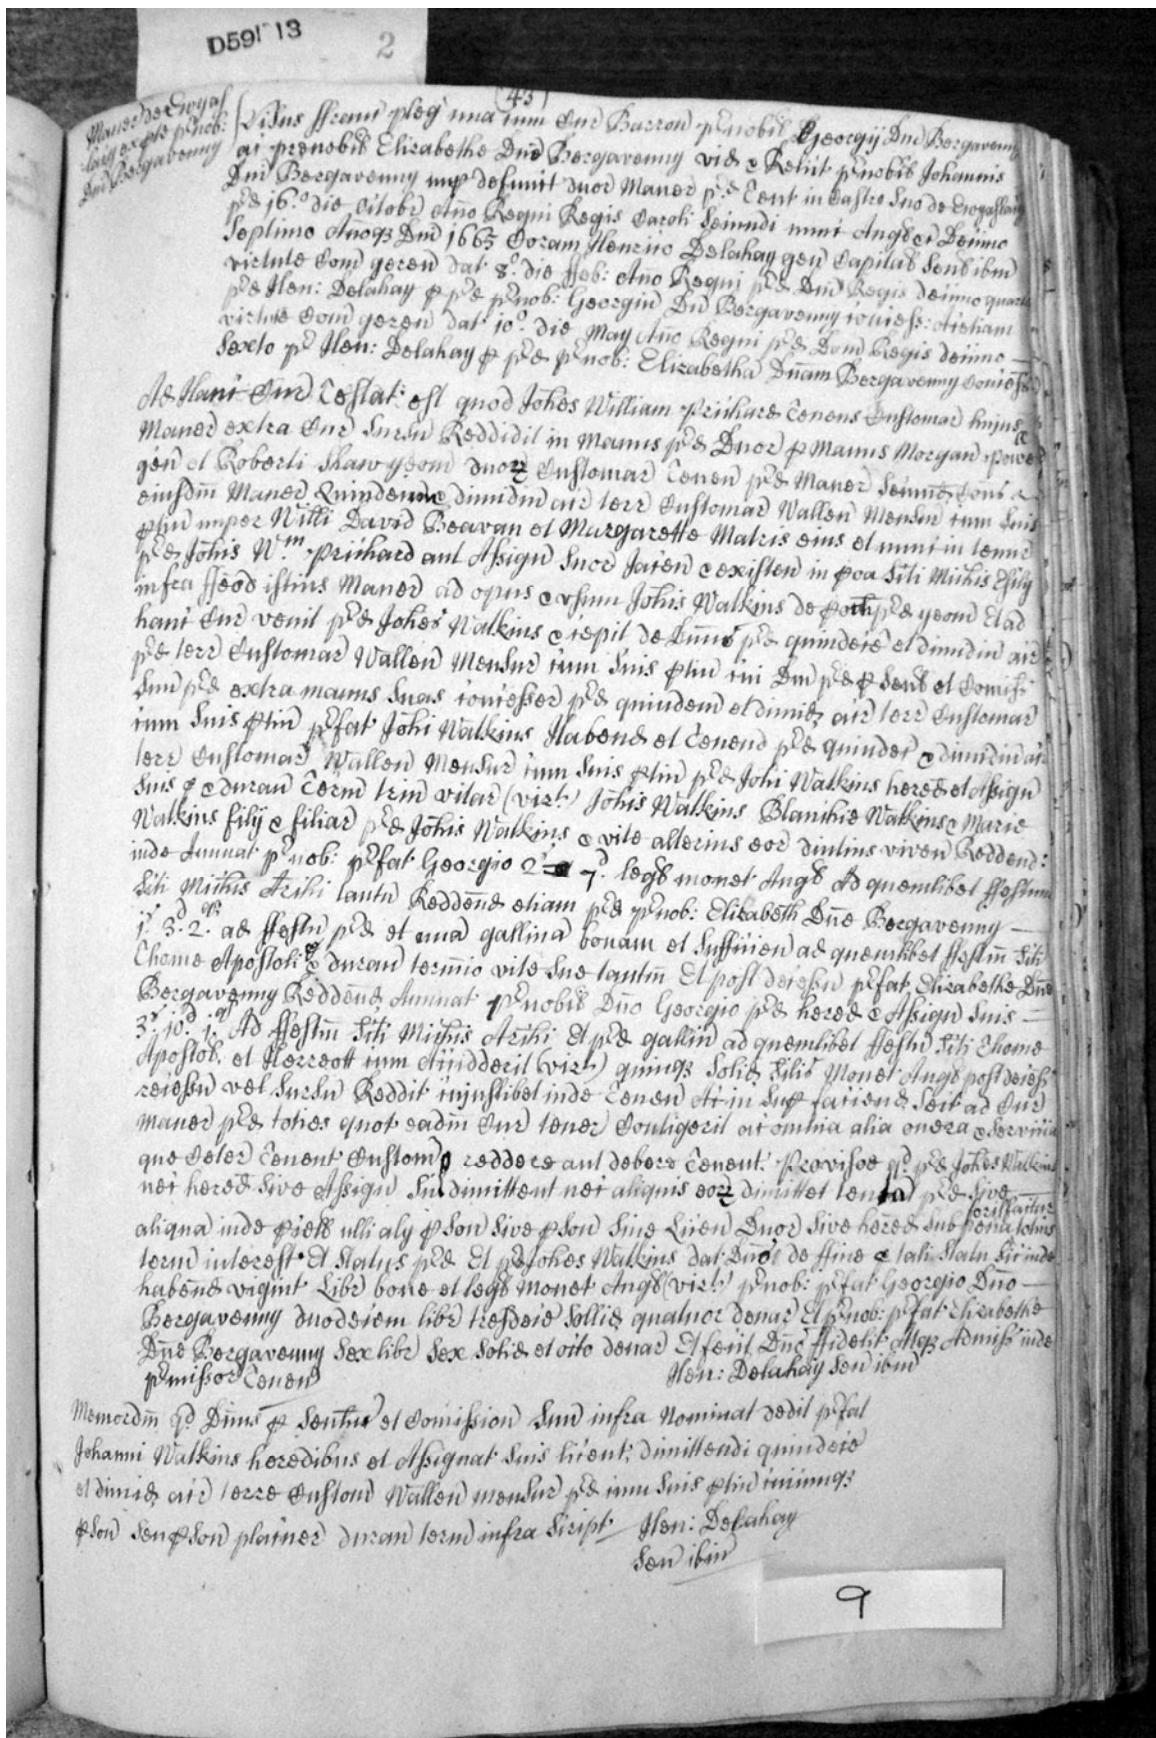 D59/ 13
2
(43)
Maner de Ewyas
laty ex pte p'nob:
Dnī Bergavenny
Visus ffranc pleg' una cum Cur Barron p'nobil Georgij Dnī Bergavenny
ac prenobil Elizabethe Dnē Bergavenny vid & Relict p'nobil Johannis
Dnī Bergavenny nup defunct duor Maner p'd Tent in Castro suo de Ewyaslacy
p'd 16.º die Octobr Año Regni Regis Caroli Secundi nunc Angl &c Decimo
Septimo Anoqȝ Dnī 1665 Coram Henrico Delahay gen Capital Senł ibm
virtute Com geren dat 8.º die ffeb: Año Regni p'd Dnī Regis decimo quarto
p'd Hen: Delahay p p'd p'nob: Georgiū Dn Bergavenny concess: ac etiam
virtute Com geren dat 10.º die May Año Regni p'd Dom Regis decimo
Sexto p'd Hen: Delahay p p'd p'nob: Elizabetha Dñam Bergavenny concess
Ad Hanc Cur Testat: est quod Johes William Prichard Tenens Customar hujus
Maner extra Cur Sursū Reddidit in Manus p'd Duor p Manus Morgan Powell
gen et Roberti Shaw yeom duorȝ Customar Tenen p'd Maner Secund Cons
eiusdm Maner Quindecim & dimidiū acr terr Customar Wallen Mensur cum suis
ptin nuper Willi David Beavan et Murgarette Matris eius et nunc in tenur
p'd Johis W.m Prichard aut Assign Suor Jacen & existen in poa Sti Michis Esily
infra ffeod istius Maner ad opus & usum Johis Watkins de poch p'd yeom Et ad
hanc Cur venit p'd Johes Watkins & cepit de Dnnis p'd quindecē et dimidiū acr
p'd terr Customar Wallen Mensur cum Suis ptin cui Dnī p'd p Senł et Comiss
Suū p'd extra manus Suas concesser p'd quindem et dimid acr terr Customar
cum Suis ptin p'fat Johi Watkins Habend et Tenend p'd quindec & dimidiū acr
terr Customar Wallen Mensur cum Suis ptin p'd Johi Watkins hered et Assign
Suis p & duran Term triū vitar (vizt) Johis Watkins Blanchie Watkins & Marie
Watkins filij & filiar p'd Johis Watkins & vite alterius eor diutius viven Reddend:
inde Annuat p'nob: p'fat Georgio 2s 7d. legł monet Angł Ad quemlibet ffestum
Sti Michis Archi tantū Reddend etiam p'd p'nob: Elizabeth Dnē Bergavenny
1s. 3d. 2qr. ad ffestū p'd et una gallina bonam et Sufficien ad quemlibet ffestm Sti
Thome Apostoli p & duran termio vite Sue tantm Et post decessū p'fat Elizabethe Dnē
Bergavenny Reddend Annuat p'nobil Dño Georgio p'd hered & Assign Suis
3s. 10d. 1qr Ad ffestm Sti Michis Archi Et p'd gallin ad quemlibet ffestū Sti Thome
Apostol, et Herreott cum Acciderit (vizt) quinqȝ Solid Silis Monet Angł post decess
recessū vel Sursū Reddit cujuslibet inde Tenen Ac in Sup faciend Sect ad Cur
maner p'd toties quot eadm Cur tener Contigerit ac omnia alia onera & servicia
que Ceter Tenent Custom p reddere aut debere tenent. Proviso qd p'd Johes Watkins
nec hered Sive Assign Sui dimittent nec aliquis eorȝ dimittet tenta p'd Sive
forisfactur
aliqua inde pcell ulli aly pson Sive pson Sine Licen Duor Sive hered Sub pena totius
term interest Et Status p'd Et p'd Johes Watkins dat Dno de ffine p tali Statu Sic inde
habend vigint Libr bone et legł Monet Angł (vizt) p'nob: p'fat Georgio Dño
Bergavenny duodecem libr tresdecē Sollid quatuor denar Et p'nob: p'fat Elizabethe
Dnē Bergavenny Sex libr Sex Solid et octo denar Et fecit Dnē ffidelit Atqȝ Admiss inde
p'missor Tenen
Hen: Delahay Sen ibm
Memordm qd Dnus p Sentū et Comission Suū infra Nominat dedit p'fat
Johanni Watkins heredibus et Assignat Suis licent, dimittendi quindecē
et dimid acr terre Custom Wallen mensur p'd cum Suis ptin cuicunqȝ
pson Seu pson placuer duran term infra Script Hen: Delahay
Sen ibm
9